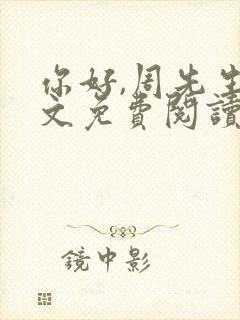 你好,周先生
文免费閱讀
鏡中影